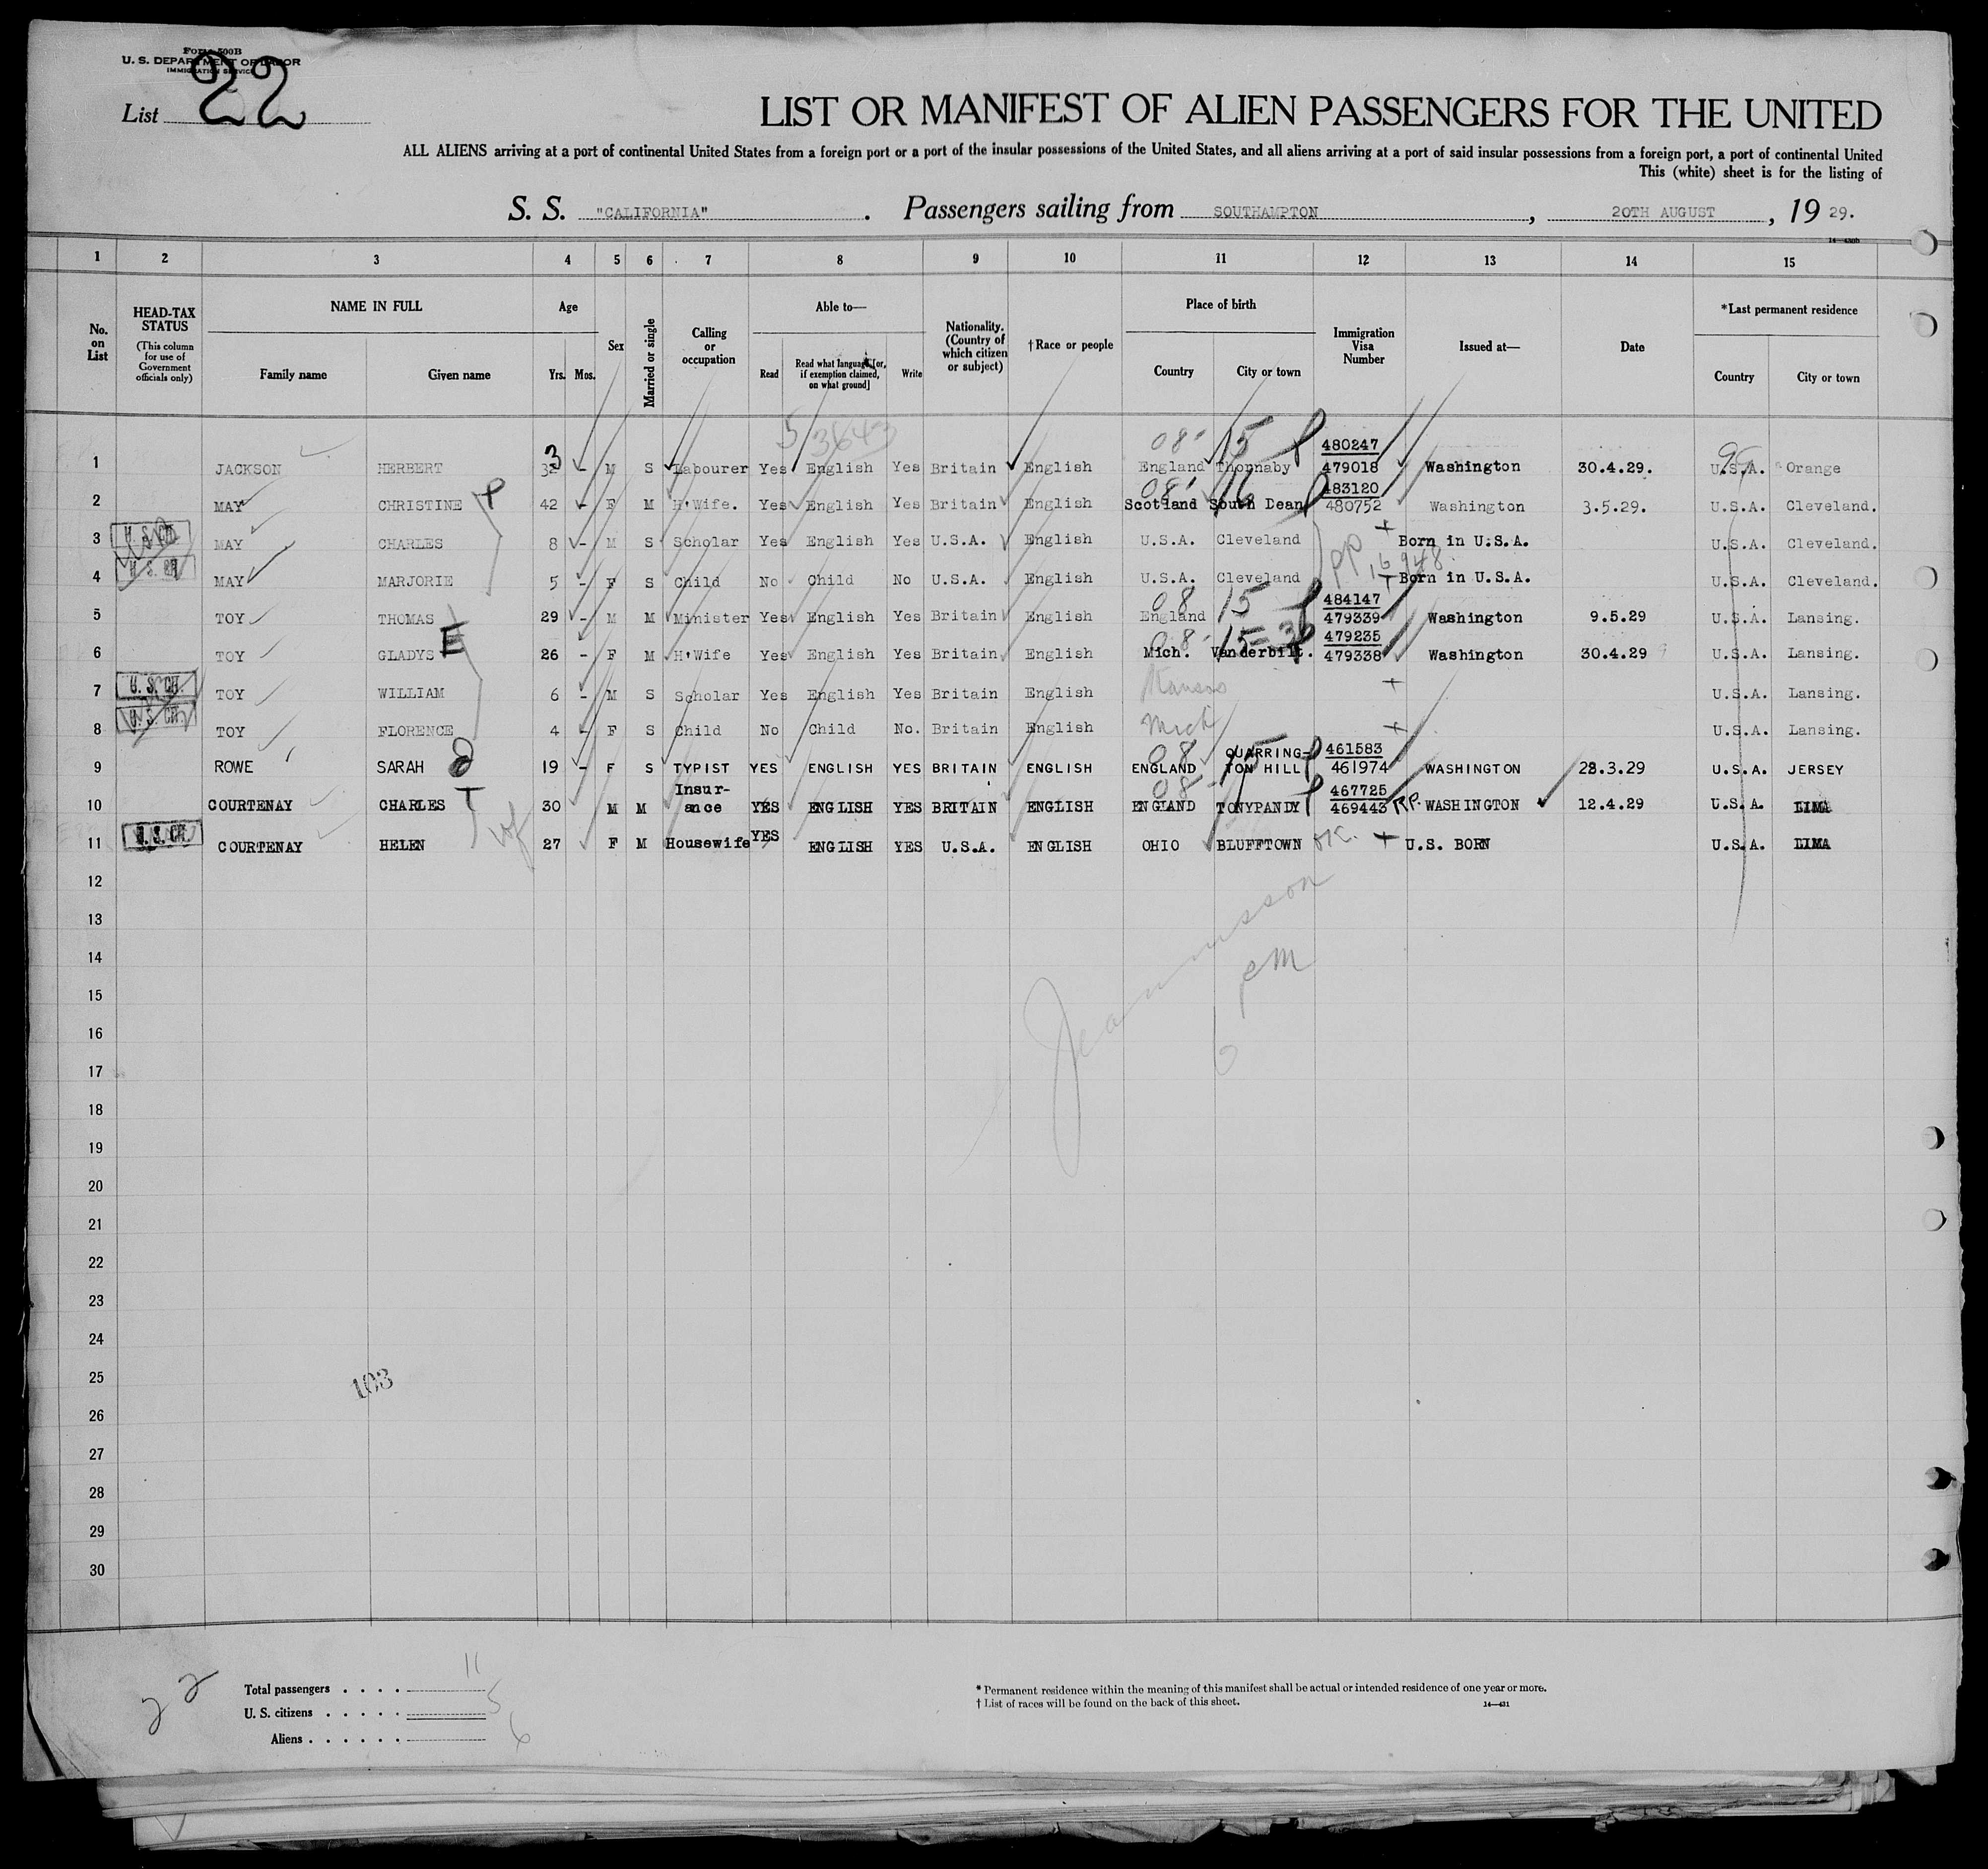 Form 500B
U. S. DEPARTMENT OF LABOR
IMMIGRATION SERVICE
List 22
LIST OR MANIFEST OF ALIEN PASSENGERS FOR THE UNITED
ALL ALIENS arriving at a port of continental United States from a foreign port or a port of the insular possessions of the United States, and all aliens arriving at a port of said insular possessions from a foreign port, a port of continental United
This (white) sheet is for the listing of
S. S. "CALIFORNIA" . Passengers sailing from SOUTHAMPTON , 20TH AUGUST , 19 29.
1 2 3 4 5 6 7 8 9 10 11 12 13 14 15
No. on List
HEAD-TAX STATUS (This column for use of Government officials only)
NAME IN FULL Family name Given name
Age Yrs. Mos.
Sex
Married or single
Calling or occupation
Able to— Read Read what language [or, if exemption claimed, on what ground] Write
Nationality. (Country of which citizen or subject)
†Race or people
Place of birth Country City or town
Immigration Visa Number
Issued at—
Date
*Last permanent residence Country City or town
5 3643 08 15 480247 95
1 JACKSON HERBERT 3 - M S Labourer Yes English Yes Britain English England Thornaby 479018 Washington 30.4.29. U.S.A. Orange
08 16 483120
2 MAY CHRISTINE P 42 - F M H'Wife. Yes English Yes Britain English Scotland South Dean 480752 Washington 3.5.29. U.S.A. Cleveland.
3 U.S.CH. MAY CHARLES 8 - M S Scholar Yes English Yes U.S.A. English U.S.A. Cleveland Born in U.S.A. U.S.A. Cleveland.
PP 16948
4 U.S.CH. MAY MARJORIE 5 - F S Child No Child No U.S.A. English U.S.A. Cleveland Born in U.S.A. U.S.A. Cleveland.
08 15 484147
5 TOY THOMAS 29 - M M Minister Yes English Yes Britain English England 479339 Washington 9.5.29 U.S.A. Lansing.
08 15 479235
6 TOY GLADYS E 26 - F M H'Wife Yes English Yes Britain English Mich. Vanderbilt. 479338 Washington 30.4.29 U.S.A. Lansing.
7 U.S.CH. TOY WILLIAM 6 - M S Scholar Yes English Yes Britain English Kansas U.S.A. Lansing.
8 U.S.CH. TOY FLORENCE 4 - F S Child No Child No. Britain English Mich U.S.A. Lansing.
08 QUARRING- 15 461583
9 ROWE SARAH 19 - F S TYPIST YES ENGLISH YES BRITAIN ENGLISH ENGLAND TON HILL 461974 WASHINGTON 28.3.29 U.S.A. JERSEY
Insur- 08 467725
10 COURTENAY CHARLES T 30 M M ance YES ENGLISH YES BRITAIN ENGLISH ENGLAND TONYPANDY 469443 RP. WASHINGTON 12.4.29 U.S.A. LIMA
11 U.S.CH. COURTENAY HELEN 27 F M Housewife YES ENGLISH YES U.S.A. ENGLISH OHIO BLUFFTOWN OK. U.S. BORN U.S.A. LIMA
12
13
14
15
16
17
18
19
20
21
22
23
24
25
103
26
27
28
29
30
22
Total passengers . . . . 11
U. S. citizens . . . . . 5
Aliens . . . . . . 6
* Permanent residence within the meaning of this manifest shall be actual or intended residence of one year or more.
† List of races will be found on the back of this sheet.
14—431